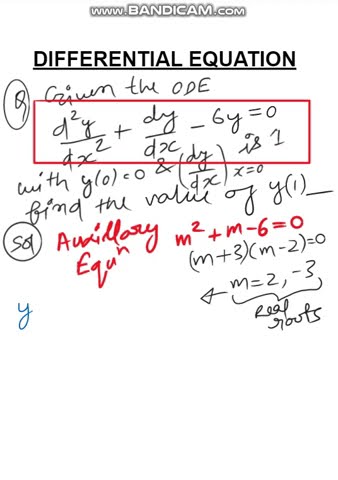 www.BANDICAM.com
DIFFERENTIAL EQUATION
Q Given the ODE
d²y/dx² + dy/dx - 6y = 0
with y(0)=0 & (dy/dx)x=0 is 1
find the value of y(1)_
Sol Auxillary m² + m - 6 = 0
Equⁿ (m+3)(m-2)=0
m = 2, -3
Real
roots
y